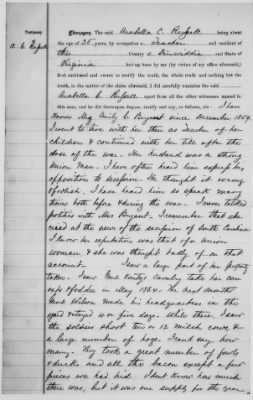 Testimony
A. C. Russell
Thereupon, The said Arabella C. Russell being about
the age of 38 years, by occupation a Teacher and resident of
the County of Dinwiddie and State of
Virginia having been by me (by virtue of my office aforesaid),
first cautioned and sworn to testify the truth, the whole truth and nothing but the
truth, in the matter of the claim aforesaid, I did carefully examine the said
Arabella C. Russell apart from all the other witnesses named in
this case, and he did thereupon depose, testify and say, as follows, viz: I have
known Mrs Emily C. Bryant since December 1859.
I went to live with her then as teacher of her
children & continued with her till after the
close of the war. Her husband was a strong
Union man. I have often heard him express his
opposition to secession. He thought it wrong
& foolish. I have heard him so speak many
times both before & during the war. I never talked
politics with Mrs Bryant. I remember that she
cried at the news of the secession of South Carolina
I know her reputation was that of a Union
woman, & she was thought badly of on that
account. I saw a large part of her property
taken. I saw Genl Kautz's cavalry take her
corn & fodder in May 1864. The next month
Genl Wilson made his headquarters in the
yard & stayed 4 or five days. While there I saw
the soldiers shoot ten or 12 milch cows &
a large number of hogs. I cant say how
many. They took a great number of fowls
& ducks and all the bacon except a few
pieces we had hid. I dont know how much
there was, but it was our supply for the year.